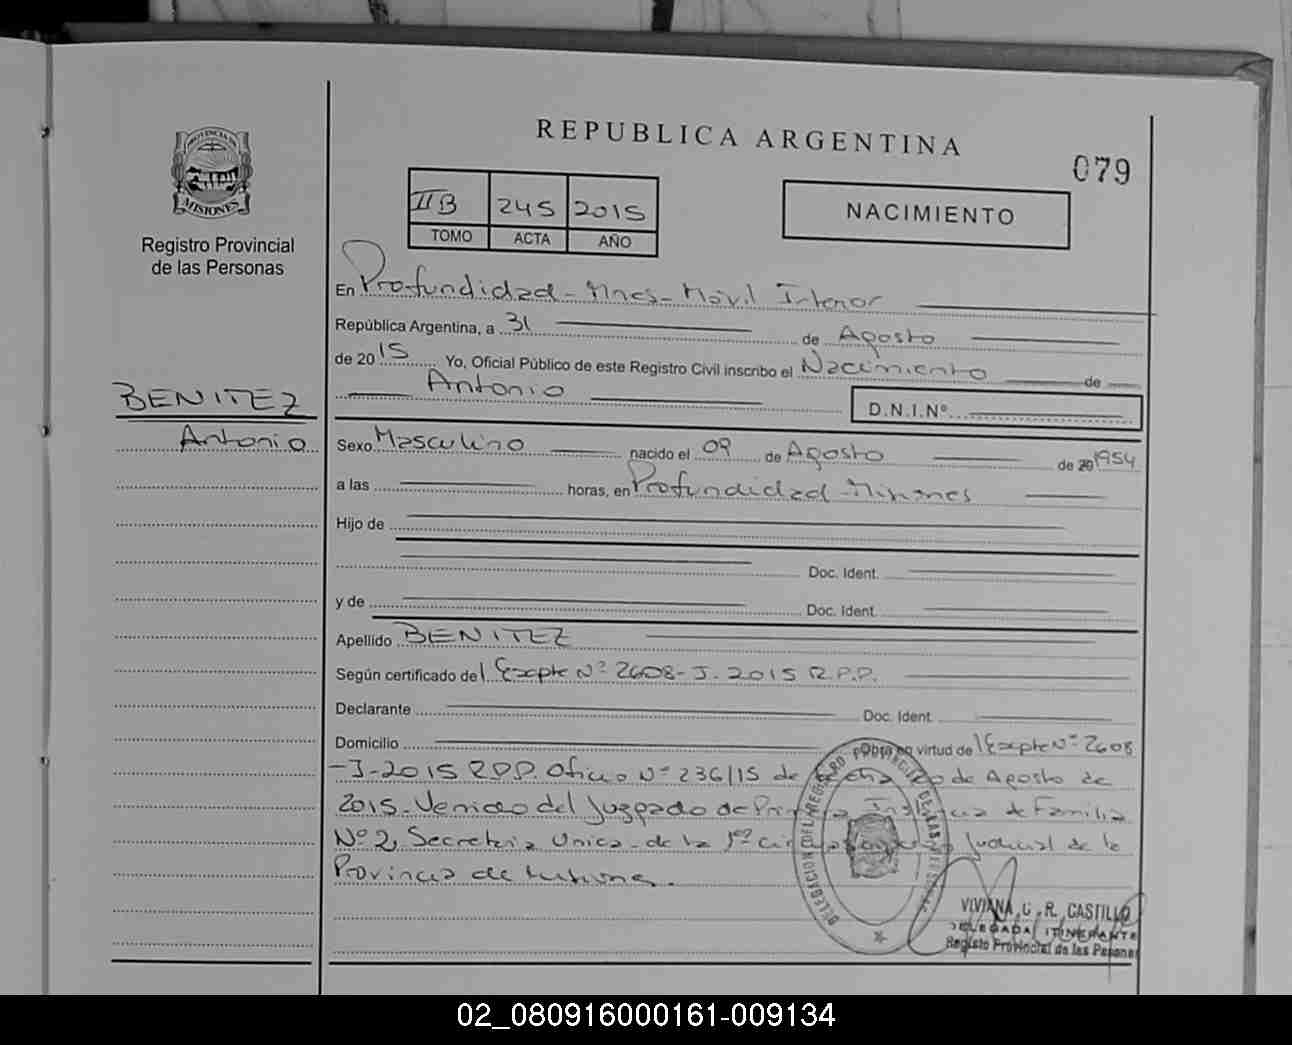 PROVINCIA DE
MISIONES
Registro Provincial
de las Personas
REPUBLICA ARGENTINA
079
IIB 245 2015
TOMO ACTA AÑO
NACIMIENTO
En Profundidad - Mnes - Móvil Interior
República Argentina, a 31 de Agosto
de 2015 Yo, Oficial Público de este Registro Civil inscribo el Nacimiento de
Antonio
D.N.I.Nº
BENITEZ
Antonio
Sexo Masculino nacido el 09 de Agosto de 20 1954
a las horas, en Profundidad - Misiones
Hijo de
Doc. Ident.
y de Doc. Ident.
Apellido BENITEZ
Según certificado de Expte Nº 2608 - J - 2015 R.P.P.
Declarante Doc. Ident.
Domicilio Obra en virtud de Expte Nº 2608
- J - 2015 R.P.P. Oficio Nº 236/15 de fecha de Agosto de
2015 - Venido del Juzgado de Primera Instancia de Familia
Nº 2, Secretaria Unica - de la 1º Judicial de la
Provincia de Misiones.
DELEGACION DEL REGISTRO PROVINCIAL DE LAS PERSONAS
VIVIANA C. R. CASTILLO
DELEGADA ITINERANTE
Registo Provincial de las Personas
02_080916000161-009134